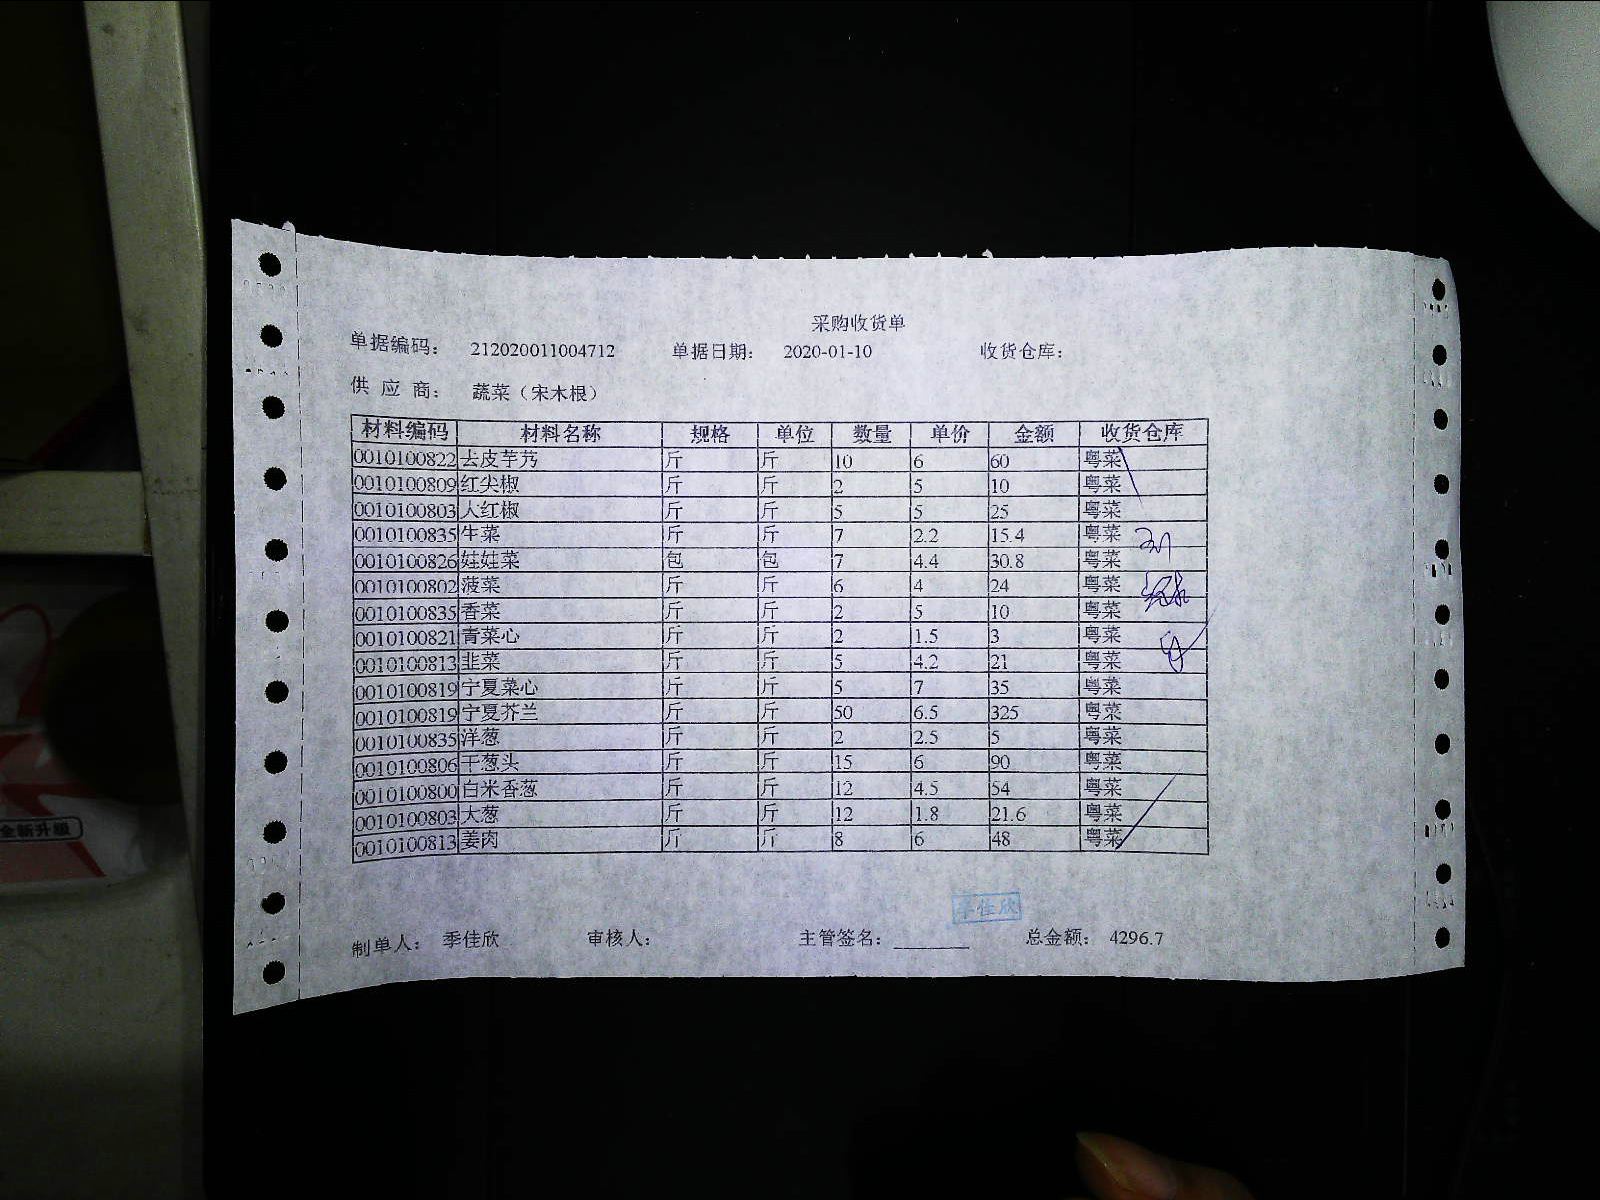 采购收货单
单据编码: 212020011004712 单据日期: 2020-01-10 收货仓库:
供 应 商: 蔬菜（宋木根）
材料编码 材料名称 规格 单位 数量 单价 金额 收货仓库
0010100822 去皮芋艿 斤 斤 10 6 60 粤菜
0010100809 红尖椒 斤 斤 2 5 10 粤菜
0010100803 大红椒 斤 斤 5 5 25 粤菜
0010100835 生菜 斤 斤 7 2.2 15.4 粤菜
0010100826 娃娃菜 包 包 7 4.4 30.8 粤菜
0010100802 菠菜 斤 斤 6 4 24 粤菜
0010100835 香菜 斤 斤 2 5 10 粤菜
0010100821 青菜心 斤 斤 2 1.5 3 粤菜
0010100813 韭菜 斤 斤 5 4.2 21 粤菜
0010100819 宁夏菜心 斤 斤 5 7 35 粤菜
0010100819 宁夏芥兰 斤 斤 50 6.5 325 粤菜
0010100835 洋葱 斤 斤 2 2.5 5 粤菜
0010100806 干葱头 斤 斤 15 6 90 粤菜
0010100800 白米香葱 斤 斤 12 4.5 54 粤菜
0010100803 大葱 斤 斤 12 1.8 21.6 粤菜
0010100813 姜肉 斤 斤 8 6 48 粤菜
季佳欣
制单人: 季佳欣 审核人: 主管签名: 总金额: 4296.7
全新升级